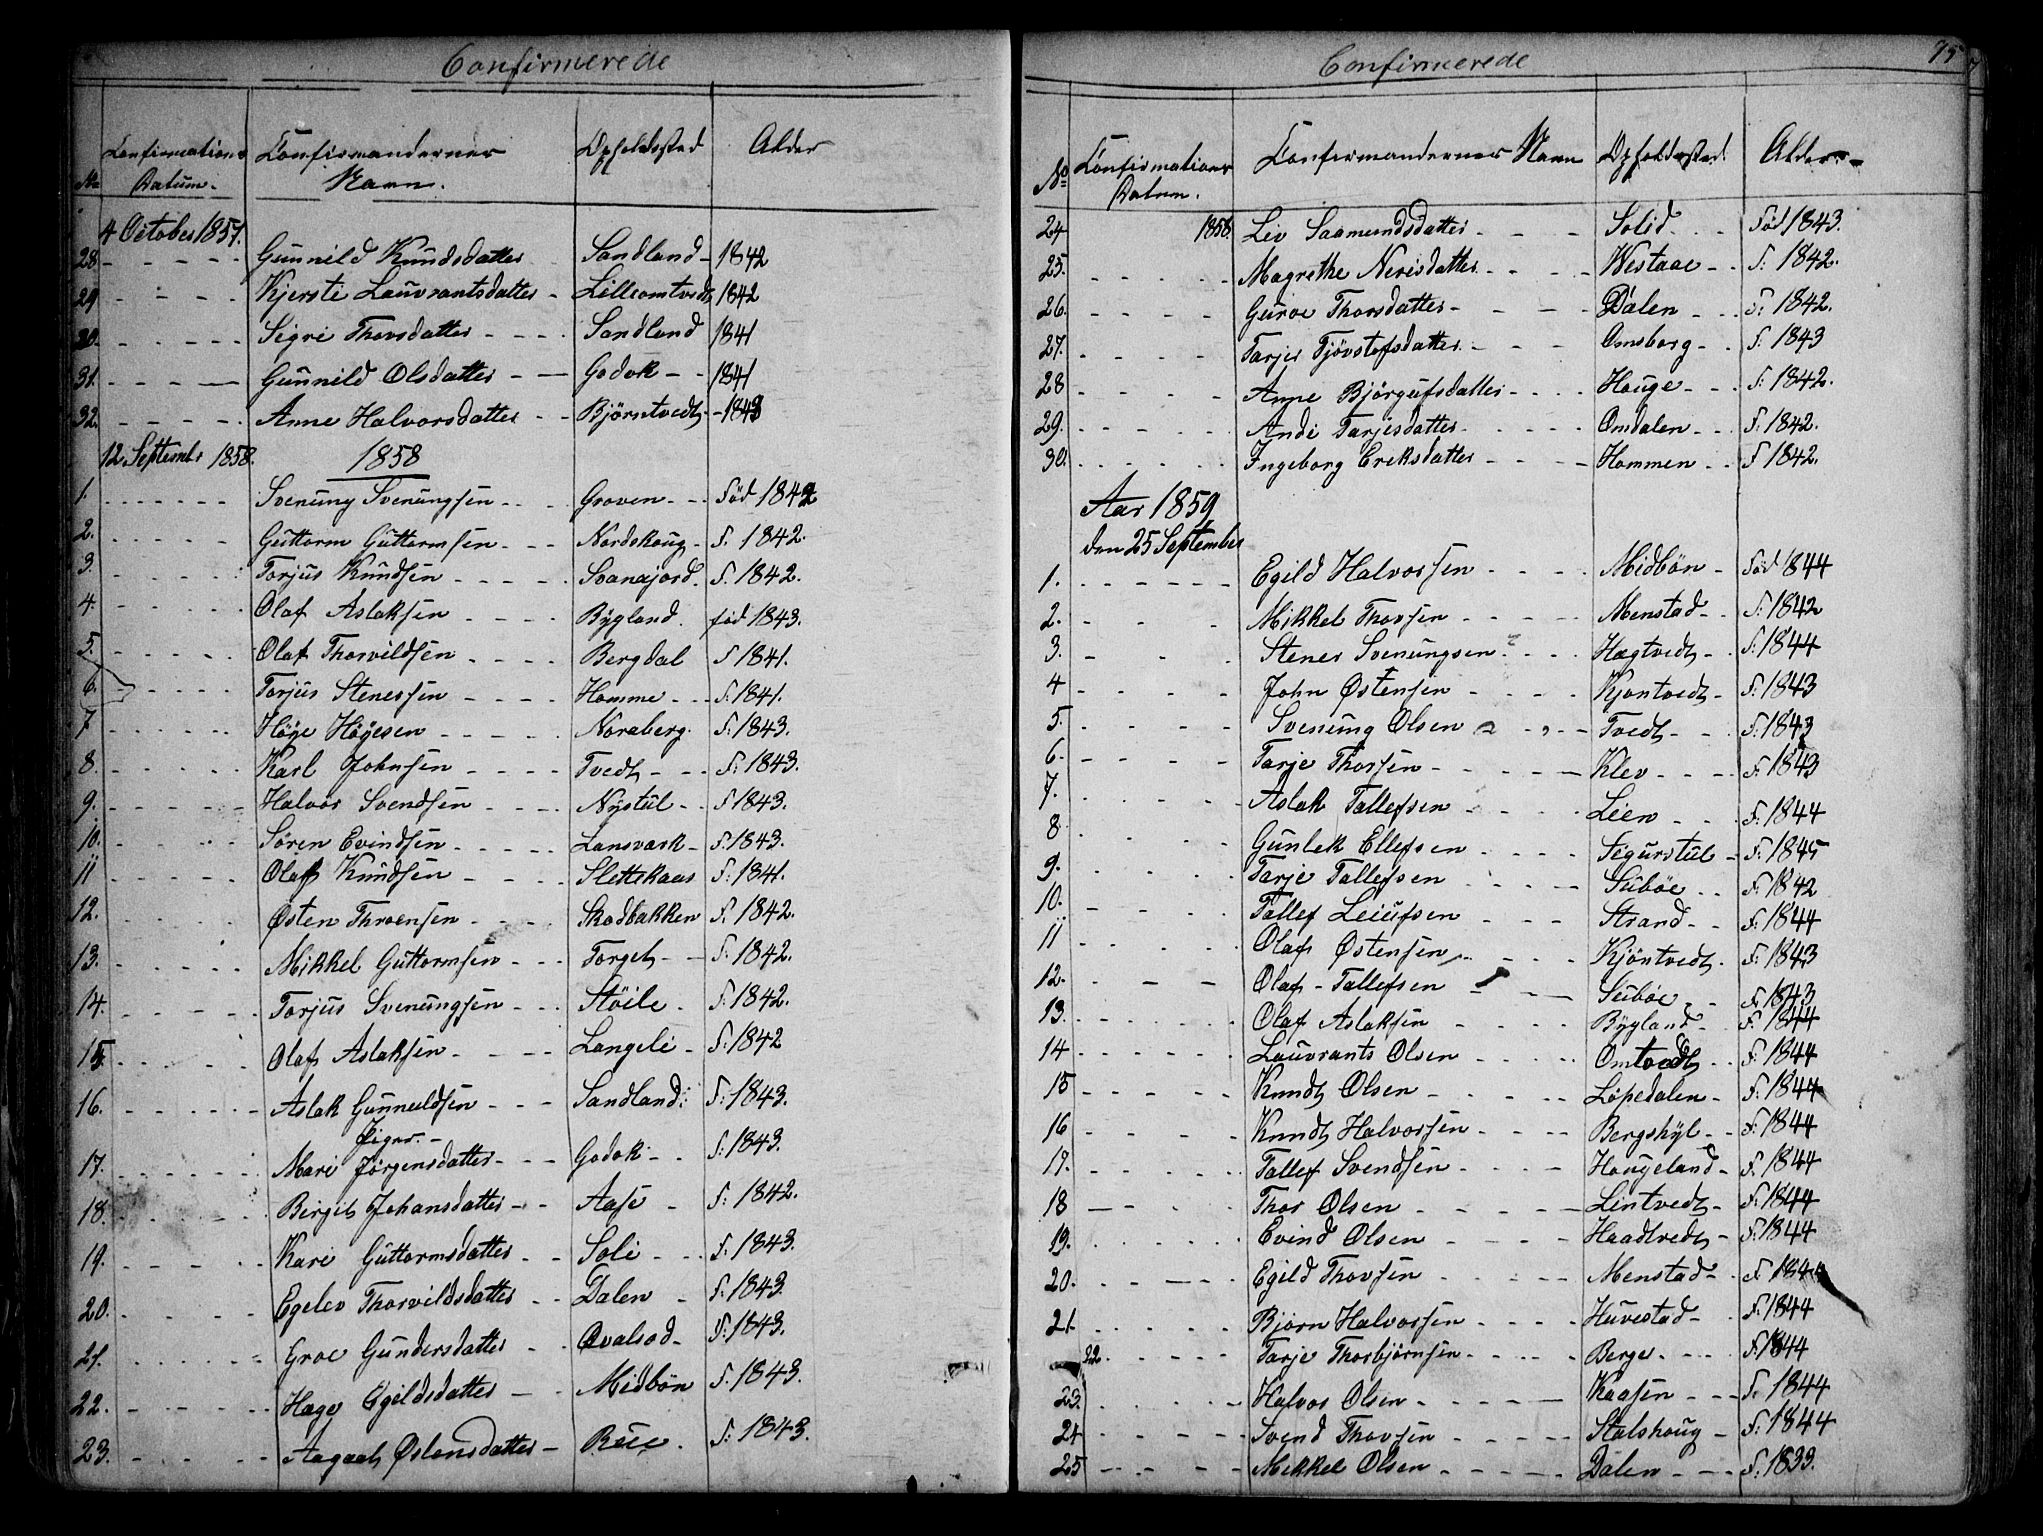 Confirmerede
No Confirmations Datum. Confirmandernes Navn. Opholdssted Alder
4 October 1857.
28 - - - - - Gunnild Knudsdatter Sandland - 1842
29 - - - - Kjersti Lauvrantsdatter - Lilleomtvedt 1842
30. - - - - - Sigri Thorsdatter - - - - Sandland 1841
31. - - - - Gunnild Olsdatter - - Godok - - 1841
32. - - - - - Anne Halvorsdatter - - Bjørntvedt - 1843
12 Septembr 1858. 1858
1. - - - - - - Svenung Svenungsen - - - Groven - - - Född 1842
2. - - - - - Guttorm Guttormsen - - - Nordskoug - F. 1842.
3. - - - - - Torjus Knudsen - - - - - Svanajord. F. 1842.
4. - - - - - Olaf Aslaksen - - - - Bÿgland. fød 1843.
5. - - - - - Olaf Thorvildsen - - - - Bergdal F 1841.
6. - - - - - Torjus Stenersen - - - - Homme - - - F. 1841.
7 - - - - - - Høÿe Høÿesen - - - - - Noraberg. F. 1843.
8. - - - - - Karl Johnsen - - - - Tvedt - - - F. 1843.
9. - - - - - - Halvor Svendsen - - - - Nÿstül - - F. 1843.
10. - - - - - Sören Evindsen - - - - - Lansvark - F. 1843.
11 - - - - - Olaf Knudsen - - - - Slettekaas F. 1841.
12. - - - - - Østen Throensen - - - - Skodbakken F. 1842.
13. - - - - - - Mikkel Guttormsen - - - Torget - - F. 1842.
14. - - - - - Torjus Svenungsen - - - Stöile - F. 1842.
15. - - - - - Olaf Aslaksen - - - - Langeli - F. 1842
16. - - - - - - Aslak Gunnuldsen - - - Sandland: F. 1843.
Piger. -
17. - - - - - Mari Jørgensdatter - - - Godok - - F. 1843.
18. - - - - - Birgit Johansdatter - - Aase - F. 1842.
19. - - - - - Kari Guttormsdatter - - Soli - - F. 1843.
20. - - - - - Egelev Thorvildsdatter - - Dalen - F. 1843.
21. - - - - - - Groe Gundersdatter - - Qvalsod - F. 1843.
22. - - - - - Hage Egildsdatter - Midbön F. 1843.
23. - - - - - Aagaat Östensdatter - Rüe. F. 1843.
Confirmerede 75
No Confirmations Datum. Confirmandernes Navn Opholdssted Alder. -
24 1858. Liv Saamundsdatter - - - Solid - - Född 1843.
25. - - - - Magrethe Nerisdatter - - - - Westaae - - F. 1842.
26. - - - - Guroe Thorsdatter - - - Dalen - - F. 1842.
27. - - - - Tarjer Tjöustofsdatter - - - Omsborg - - F. 1843
28 - - - - Anne Bjørgufsdatter - - - - Houge - - - F. 1842.
29. - - - - - Andi Tarjesdatter - - - - - Omdalen - - F. 1842.
30. - - - - - Ingeborg Eriksdatter - - - - Hommen - - F 1842.
Aar 1859
den 25 September
1. - - - - - - Egild Halvorsen - - - - Midbön - Född 1844
2. - - - Mikkel Thorsen - - - - - Menstad - - F. 1842
3. - - - Stener Svenungsen - - - Hægtvedt - - F. 1844
4 - - - - John Østensen - - - - Kjontvedt - F. 1843
5. - - - - Svenung Olsen - - - Tvedt - - F. 1843
6. - - - - Tarje Thorsen - - - - - Klev - - - - F. 1843
7. - - - - Aslak Tallefsen - - - - Lien - - - F. 1844
8 - - - - Gunlek Ellefsen - - - - Sigurstül - F. 1845
9. - - - - - Tarje Tallefsen - - - - Sübøe - - F. 1842
10. - - - - Tallef Leiufsen - - - Strand - - F. 1844
11 - - - - Olaf Østensen - - - - Kjöntvedt. F. 1843
12. - - - Olaf Tallefsen - - Sübøe - - F. 1843
13. - - - - - - Olaf Aslaksen - - - - Bÿgland - - F. 1844
14 - - - - - - Lauvrants Olsen - - - - Omtvedt - - F. 1844
15 - - - - - Knudt Olsen - - - - - Löpedalen - F. 1844
16 - - - - Knudt Halvorsen - - - - Bergshÿl - - F. 1844
17. - - - - - Tallef Svendsen - - - - Hougeland - F. 1844
18 - - - - Thor Olsen - - - - - Lintvedt - F. 1844
19. - - - - - Evind Olsen - - - - Haadtvedt - F. 1844
20. - - - - - Egild Thorsen - - - - - Menstad - - F. 1844
21. - - - - - Bjørn Halvorsen - - - - Huvestad - F. 1844
22. - - - - - Tarje Thorbjørnsen - - - - Berge - - - - F. 1844
23. - - - - - Halvor Olsen - - - - - Kaasen - - - F. 1844
24 - - - - - Svend Thorsen - - - - - Stalshoug - F. 1844
25 - - - - - Mikkel Olsen - - - - - Dalen - - - F. 1833.